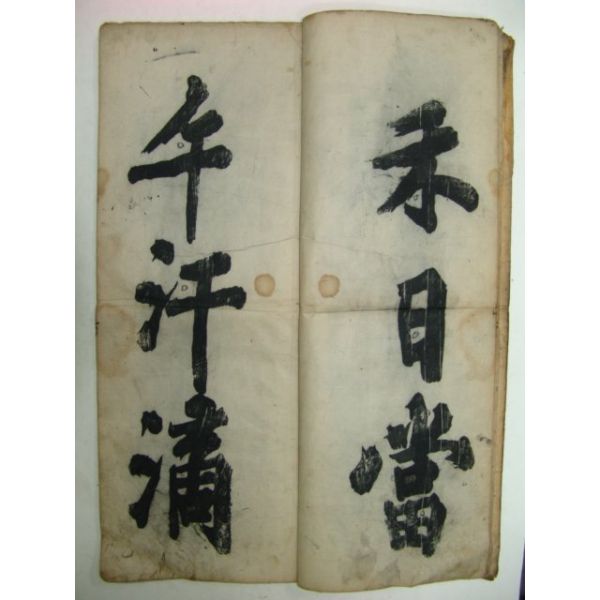 禾日當
午汗滴